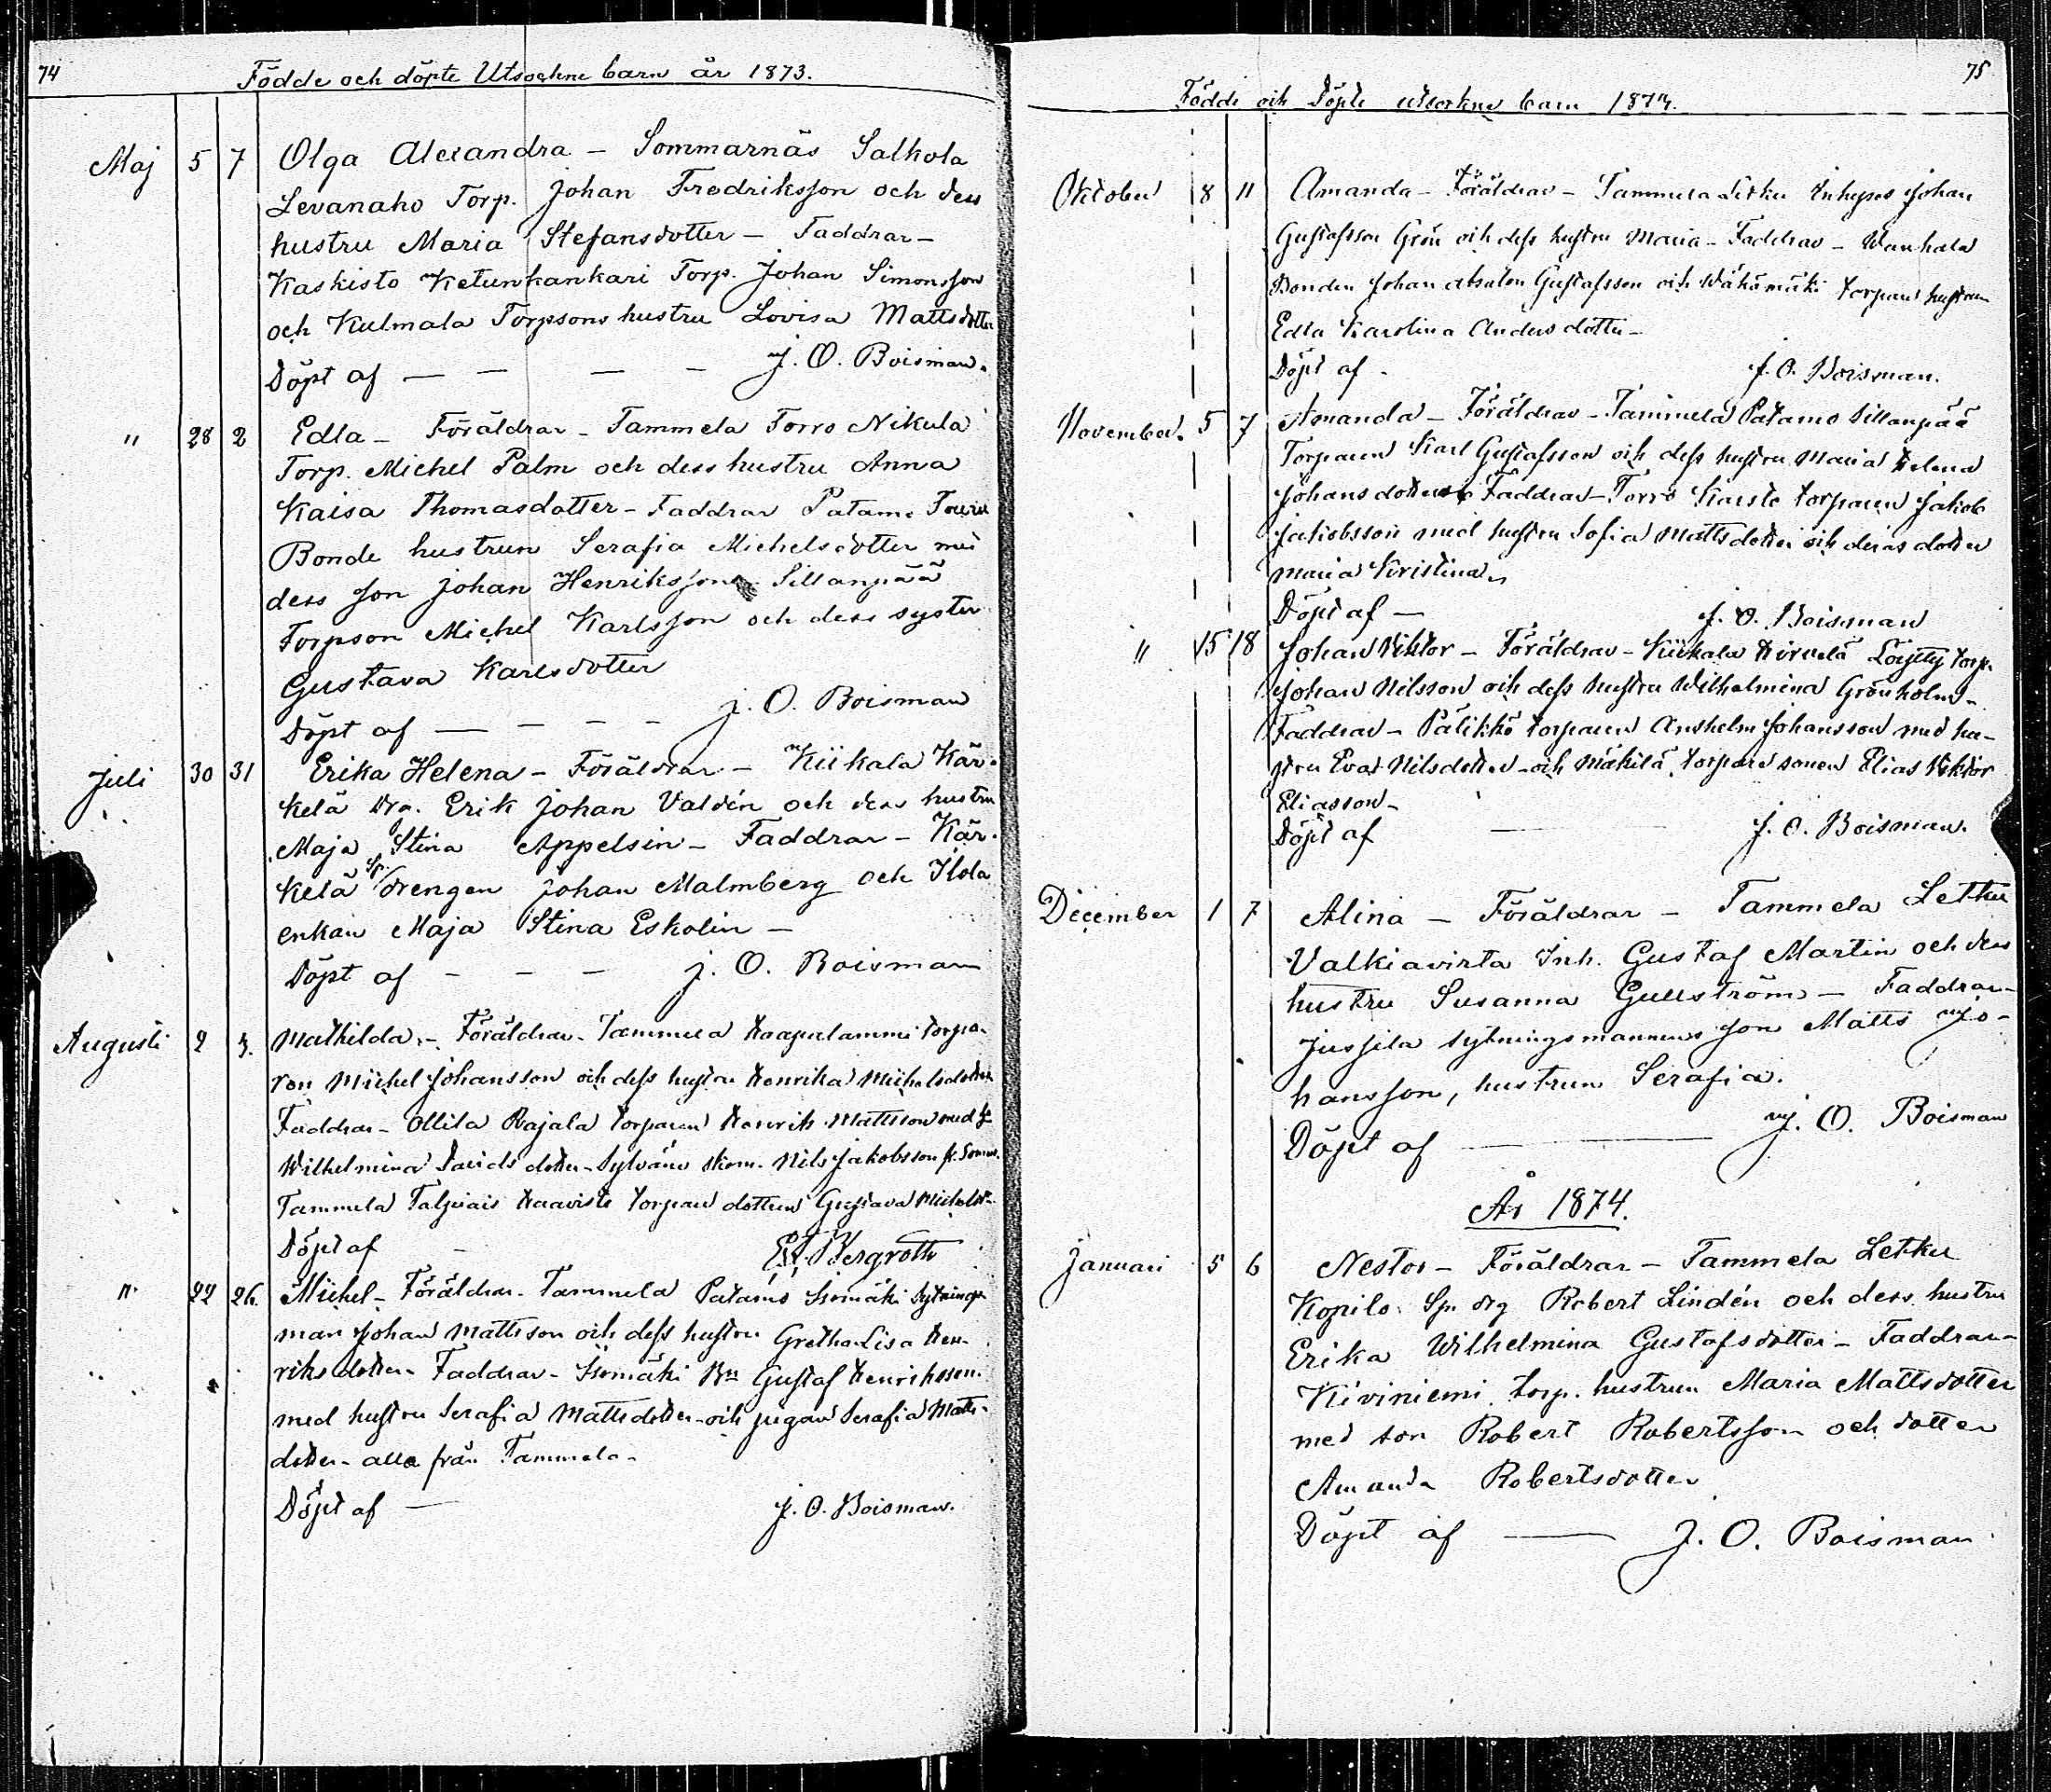 74
Födde och döpte Utsockne barn år 1873.
Maj 5 7 Olga Alexandra - Sommarnäs Salkola
Levanaho Torp. Johan Fredriksson och dess
hustru Maria Stefansdotter - Faddrar -
Kaskisto Ketunkankari Torp. Johan Simonsson
och Kulmala Torpsons hustru Lovisa Mattsdotter
Döpt af — — — — J. O. Boisman.
" 28 2 Edla - Föräldrar - Tammela Torro Nikula
Torp. Michel Palm och dess hustru Anna
Kaisa Thomasdotter - Faddrar Patamo
Bonde hustrun Serafia Michelsdotter med
dess son Johan Henriksson Sillanpää
Torpson Michel Karlsson och dess syster
Gustava Karlsdotter
Döpt af — — — — J. O. Boisman
Juli 30 31 Erika Helena - Föräldrar - Kiikala Kär-
kelä Dr. Erik Johan Valdén och dess hustru
Maja Stina Appelsin - Faddrar - Kär-
kelä Sp. drengen Johan Malmberg och Ilola
enkan Maja Stina Eskolin -
Döpt af - — — J. O. Boisman
Augusti 2 3. Mathilda - Föräldrar - Tammela Haapalammi torpa-
ren Michel Johansson och dess hustru Henrika Michelsdotter
Faddrar - Ollila Rajala torparen Henrik Mattsson med h.
Wilhelmina Davidsdotter - Sylvänö skom. Nils Jakobsson fr. Somero.
Tammela Talpiais Haavisto torpare dottren Gustava Michelsdr.
Döpt af - Bergroth
" 22 26. Michel - Föräldrar - Tammela Patamo Isomäki Sytnings-
man Johan Mattsson och dess hustru Gretha Lisa Hen-
riksdotter - Faddrar - Isomäki Bn Gustaf Henriksson
med hustru Serafia Mattsdotter - och pigan Serafia Matts-
dotter - alla från Tammela -
Döpt af — J. O. Boisman.
75
Födde och Döpte utsockne barn 1873.
Oktober 8 11 Amanda - Föräldrar - Tammela Letku Inhyses Johan
Gustafsson Grön och dess hustru Maria - Faddrar - Wanhala
Bonden Johan Absalon Gustafsson och Wähämäki torpare hustrun
Edla Karolina Andersdotter -
Döpt af - J. O. Boisman.
November. 5 7 Amanda - Föräldrar - Tammela Patamo Sillanpää
Torparen Karl Gustafsson och dess hustru Maria Helena
Johansdotter - Faddrar - Torro Karsto torparen Jakob
Jakobsson med hustru Sofia Mattsdotter och deras dotter
Maria Kristina -
Döpt af — J. O. Boisman
" 15 18 Johan Viktor - Föräldrar - Kiikala Hirvelä torp.
Johan Nilsson och dess hustru Wilhelmina Grönholm -
Faddrar - Pälikkö torparen Anshelm Johansson med hu-
stru Eva Nilsdotter - och Mäkilä torpare sonen Elias Viktor
Eliasson -
Döpt af — — J. O. Boisman.
December 1 7 Alina - Föräldrar - Tammela Letku
Valkiavirta Inh. Gustaf Martin och dess
hustru Susanna Gullström - Faddrar -
Jussila sytningsmannens son Matts Jo-
hansson, hustrun Serafia.
Döpt af — — J. O. Boisman
År 1874.
Januari 5 6 Nestor - Föräldrar - Tammela Letku
Kopilo Sp. drg Robert Lindén och dess hustru
Erika Wilhelmina Gustafsdotter - Faddrar -
Kiviniemi torp. hustrun Maria Mattsdotter
med son Robert Robertsson och dotter
Amanda Robertsdotter
Döpt af — J. O. Boisman